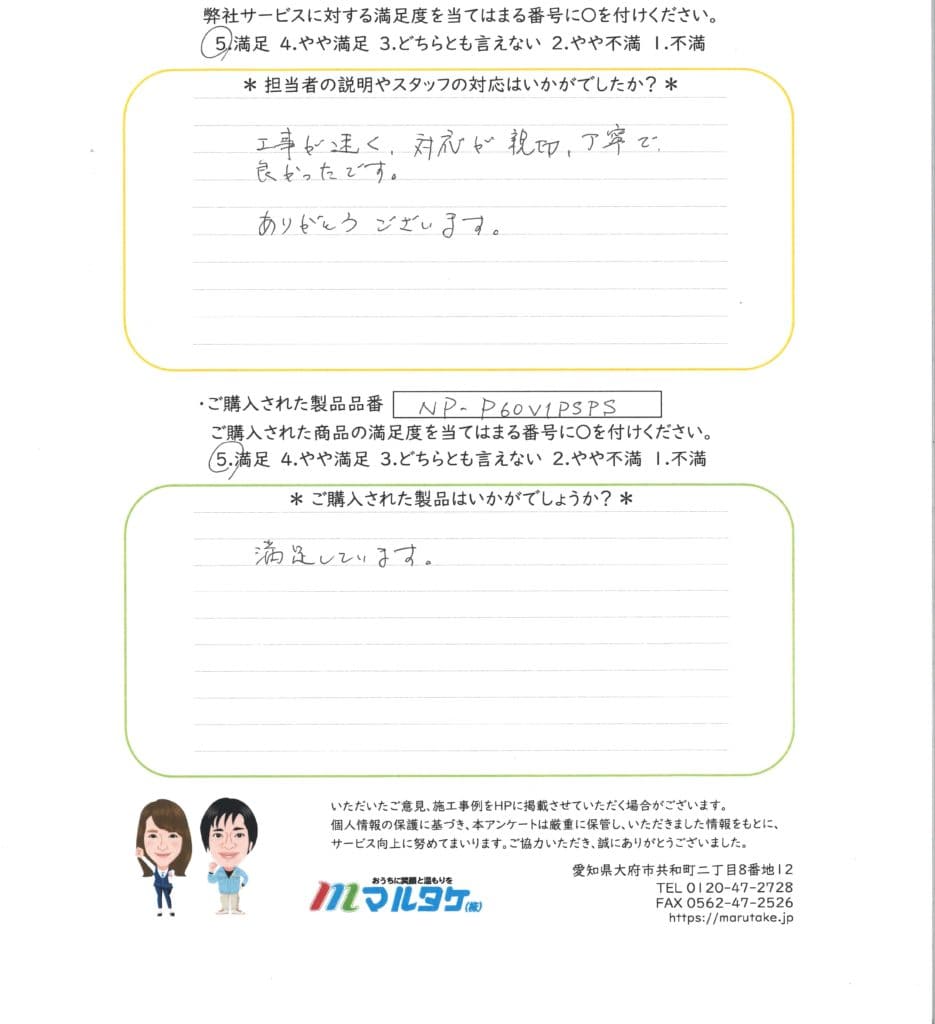 弊社サービスに対する満足度を当てはまる番号に〇を付けください。
5.満足 4.やや満足 3.どちらとも言えない 2.やや不満 1.不満
＊担当者の説明やスタッフの対応はいかがでしたか？＊
工事が速く、対応が親切、丁寧で、
良かったです。
ありがとうございます。
・ご購入された製品品番 NP-P60V1PSPS
ご購入された商品の満足度を当てはまる番号に〇を付けください。
5.満足 4.やや満足 3.どちらとも言えない 2.やや不満 1.不満
＊ご購入された製品はいかがでしょうか？＊
満足しています。
いただいたご意見、施工事例をHPに掲載させていただく場合がございます。
個人情報の保護に基づき、本アンケートは厳重に保管し、いただきました情報をもとに、
サービス向上に努めてまいります。ご協力いただき、誠にありがとうございました。
おうちに笑顔と温もりを
マルタケ(株)
愛知県大府市共和町二丁目8番地12
TEL 0120-47-2728
FAX 0562-47-2526
https://marutake.jp